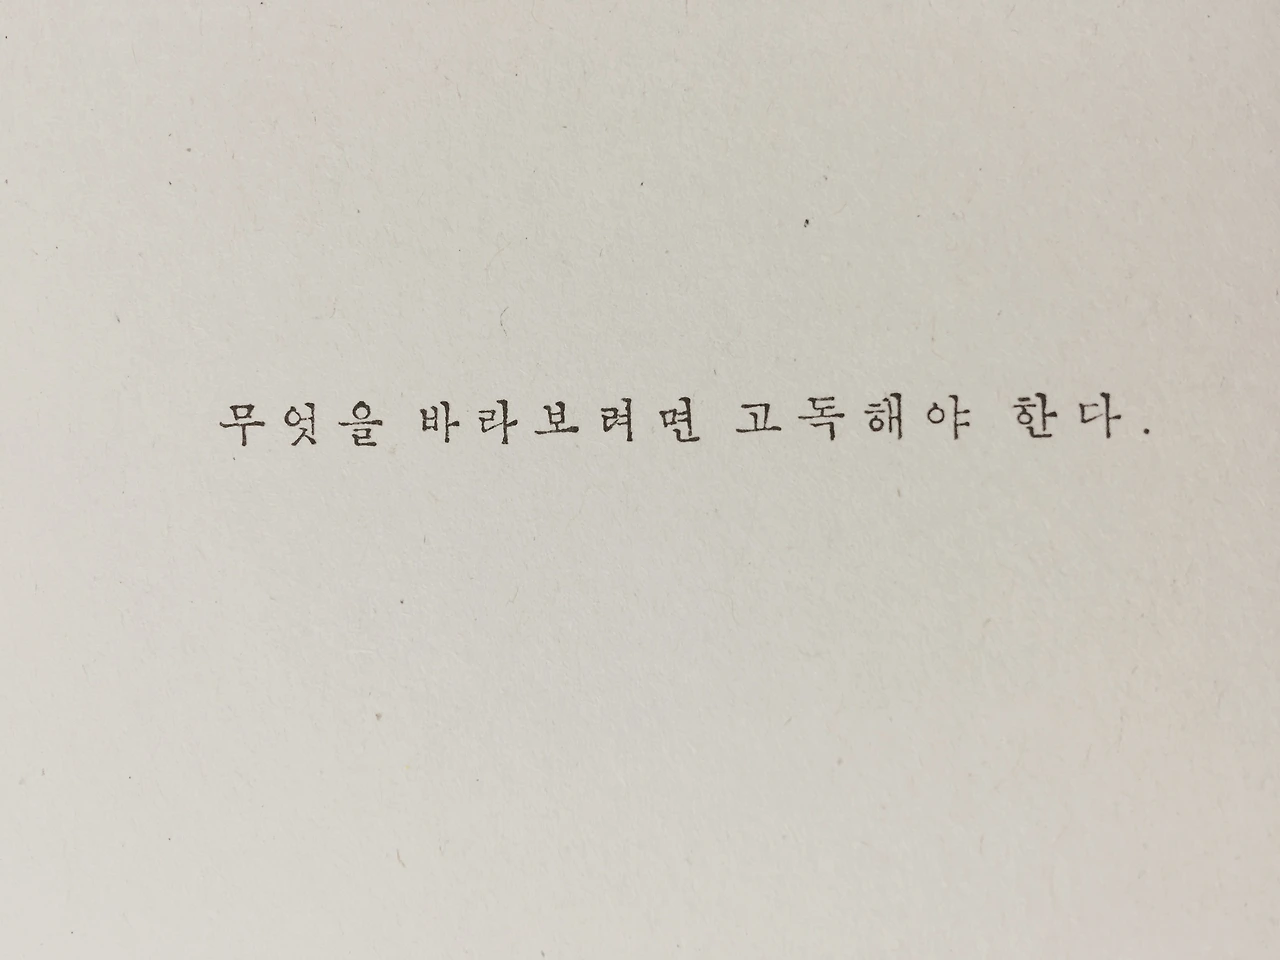 무엇을 바라보려면 고독해야 한다.